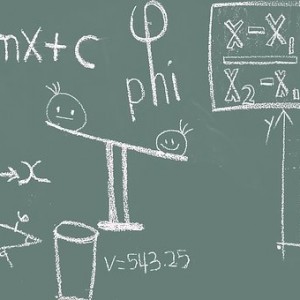 mx+c
φ
phi
x-x₁
x₂-x₁
y
→x
6
v=543.25